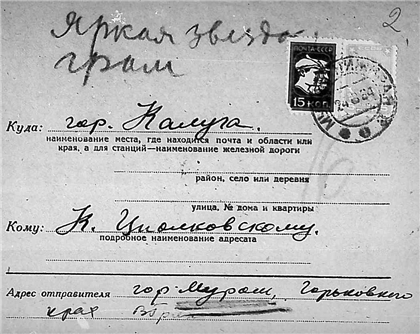 2.
Яркая звезда
грам
ПОЧТА СССР
15 КОП.
Куда: гор. Калуга.
наименование места, где находится почта и области или
края, а для станций—наименование железной дороги
район, село или деревня
улица, № дома и квартиры
Кому: К. Циолковскому.
подробное наименование адресата
Адрес отправителя гор Муром, Горьковского
края